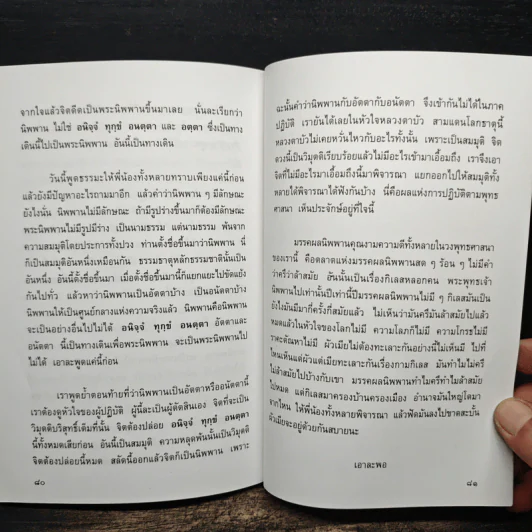 จากใจแล้วจิตดีดเป็นพระนิพพานขึ้นมาเลย นั่นละเรียกว่า
นิพพาน ไม่ใช่ อนิจฺจํ ทุกฺขํ อนตฺตา และ อตฺตา ซึ่งเป็นทาง
เดินนี้ไปเป็นพระนิพพาน อันนี้เป็นทางเดิน
วันนี้พูดธรรมะให้พี่น้องทั้งหลายทราบเพียงแค่นี้ก่อน
แล้วยังมีปัญหาอะไรถามมาอีก แล้วคำว่านิพพาน ๆ มีลักษณะ
ยังไงนั้น นิพพานไม่มีลักษณะ ถ้ามีรูปร่างขึ้นมาก็ต้องมีลักษณะ
พระนิพพานไม่มีรูปมีร่าง เป็นนามธรรม แต่นามธรรม พ้นจาก
ความสมมุติโดยประการทั้งปวง ท่านตั้งชื่อขึ้นมาว่านิพพาน นี่
ก็เป็นสมมุติอันหนึ่งเหมือนกัน ธรรมธาตุหลักธรรมชาตินั้นเป็น
อันหนึ่ง อันนี้ตั้งชื่อขึ้นมา เมื่อตั้งชื่อขึ้นมานี้ก็แยกแยะไปขัดแย้ง
กันไปทั่ว แล้วหาว่านิพพานเป็นอัตตาบ้าง เป็นอนัตตาบ้าง
นิพพานให้เป็นศูนย์กลางแห่งความจริงแล้ว นิพพานคือนิพพาน
จะเป็นอย่างอื่นไปไม่ได้ อนิจฺจํ ทุกฺขํ อนตฺตา อัตตาและ
อนัตตา นี้เป็นทางเดินเพื่อพระนิพพาน จะเป็นพระนิพพานไป
ไม่ได้ เอาละพูดแค่นี้ก่อน
เราพูดย้ำตอนท้ายที่ว่านิพพานเป็นอัตตาหรืออนัตตานี้
เราต้องดูหัวใจของผู้ปฏิบัติ ผู้นี้ละเป็นผู้ตัดสินเอง จิตที่จะเป็น
วิมุตติบริสุทธิ์เต็มที่นั้น จิตต้องปล่อย อนิจฺจํ ทุกฺขํ อนตฺตา
นี้ทั้งหมดเสียก่อน อันนี้เป็นสมมุติ ความหลุดพ้นนั้นเป็นวิมุตติ
จิตต้องปล่อยนี้หมด สลัดนี้ออกแล้วจิตก็เป็นนิพพาน เพราะ
๘๐
ฉะนั้นคำว่านิพพานกับอัตตากับอนัตตา จึงเข้ากันไม่ได้ในภาค
ปฏิบัติ เรายันได้เลยในหัวใจหลวงตาบัว สามแดนโลกธาตุนี้
หลวงตาบัวไม่เคยหวั่นไหวกับอะไรทั้งนั้น เพราะเป็นสมมุติ จิต
ดวงนี้เป็นวิมุตติเรียบร้อยแล้วไม่มีอะไรเข้ามาเอื้อมถึง เราจึงเอา
จิตที่ไม่มีอะไรมาเอื้อมถึงนี้มาพิจารณา แยกออกไปให้สมมุติทั้ง
หลายได้พิจารณาได้ฟังกันบ้าง นี่คือผลแห่งการปฏิบัติตามพุทธ
ศาสนา เห็นประจักษ์อยู่ที่ใจนี้
มรรคผลนิพพานคุณงามความดีทั้งหลายในวงพุทธศาสนา
ของเรานี้ คือตลาดแห่งมรรคผลนิพพานสด ๆ ร้อน ๆ ไม่มีคำ
ว่าครึว่าล้าสมัย อันนั้นเป็นเรื่องกิเลสหลอกคน พระพุทธเจ้า
นิพพานไปเท่านั้นปีเท่านี้ปีมรรคผลนิพพานไม่มี ๆ กิเลสมันเป็น
ยังไงมันมีมากี่ครั้งกี่สมัยแล้ว ไม่เห็นว่ามันครึมันล้าสมัยไปแล้ว
หมดแล้วในหัวใจของโลกไม่มี ความโลภก็ไม่มี ความโกรธไม่มี
ราคะตัณหาไม่มี ผัวเมียไม่ต้องทะเลาะกันอย่างนี้ไม่เห็นมี ไปที่
ไหนเห็นแต่ผัวแต่เมียทะเลาะกันเรื่องกามกิเลส มันทำไมไม่ครึ
ไม่ล้าสมัยไปบ้างกับเขา มรรคผลนิพพานทำไมครึทำไมล้าสมัย
ไปหมด แต่กิเลสมาครองบ้านครองเมือง อำนาจมันใหญ่โตมา
จากไหน ให้พี่น้องทั้งหลายพิจารณา แล้วฟัดมันลงไปขาดสะบั้น
ผัวเมียจะอยู่ด้วยกันสบายนะ
เอาละพอ
๘๑